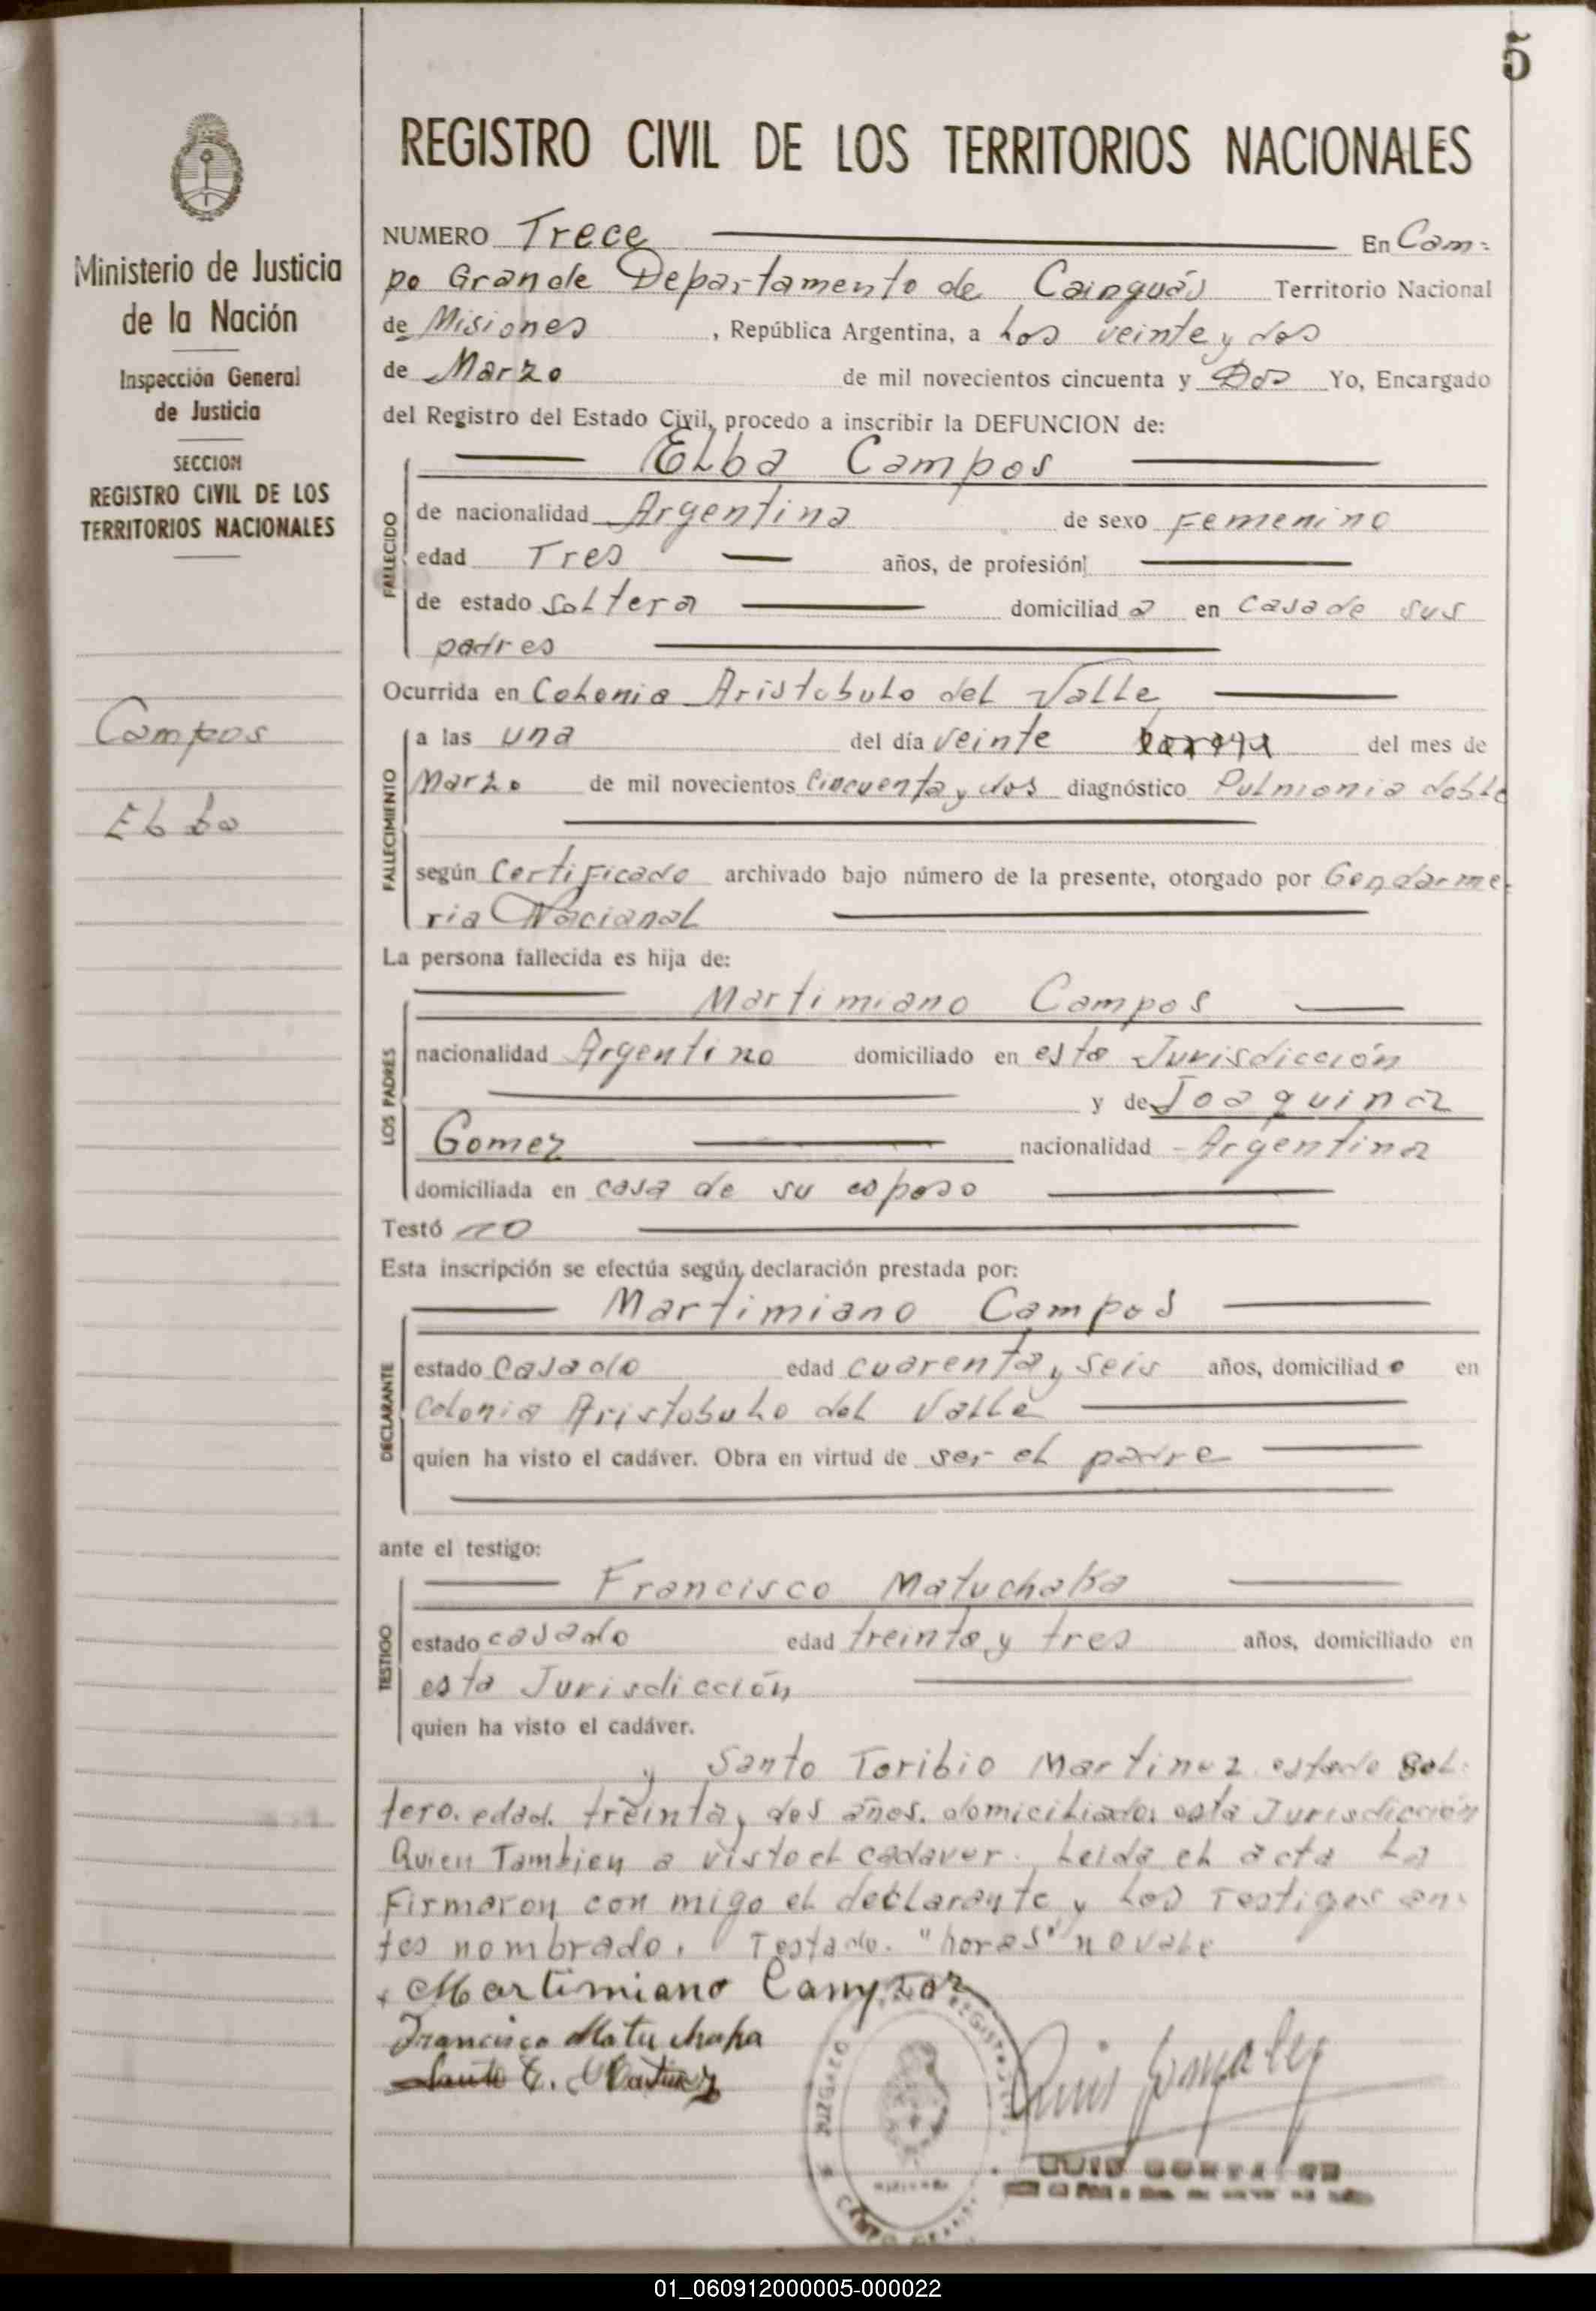 5
REGISTRO CIVIL DE LOS TERRITORIOS NACIONALES
Ministerio de Justicia
de la Nación
Inspección General
de Justicia
SECCION
REGISTRO CIVIL DE LOS
TERRITORIOS NACIONALES
Campos
Elba
NUMERO Trece En Cam-
po Grande Departamento de Cainguás Territorio Nacional
de Misiones, República Argentina, a los veinte y dos
de Marzo de mil novecientos cincuenta y Dos Yo, Encargado
del Registro del Estado Civil, procedo a inscribir la DEFUNCION de:
FALLECIDO
Elba Campos
de nacionalidad Argentina de sexo Femenino
edad Tres años, de profesión
de estado soltera domiciliada en casa de sus
padres
Ocurrida en Colonia Aristobulo del Valle
FALLECIMIENTO
a las una del día veinte del mes de
Marzo de mil novecientos cincuenta y dos diagnóstico Pulmonia doble
según Certificado archivado bajo número de la presente, otorgado por Gendarme-
ria Nacional
La persona fallecida es hija de:
LOS PADRES
Martimiano Campos
nacionalidad Argentino domiciliado en esta Jurisdicción
y de Joaquina
Gomez nacionalidad Argentina
domiciliada en casa de su esposo
Testó no
Esta inscripción se efectúa según declaración prestada por:
DECLARANTE
Martimiano Campos
estado casado edad cuarenta y seis años, domiciliado en
Colonia Aristobulo del Valle
quien ha visto el cadáver. Obra en virtud de ser el padre
ante el testigo:
TESTIGO
Francisco Matuchaka
estado casado edad treinta y tres años, domiciliado en
esta Jurisdicción
quien ha visto el cadáver.
y Santo Toribio Martinez estado sol-
tero. edad. treinta y dos años. domiciliado. esta Jurisdicción
Quien Tambien a visto el cadaver. Leida el acta la
Firmaron con migo el declarante y los Testigos an-
tes nombrado. Testado. "horas" no vale
Martimiano Campos
Francisco Matuchaka
Santo T. Martinez
Luis Gonzalez
JUZGADO REGISTRO
MISIONES
CAMPO GRANDE
LUIS GONZALEZ
01_060912000005-000022